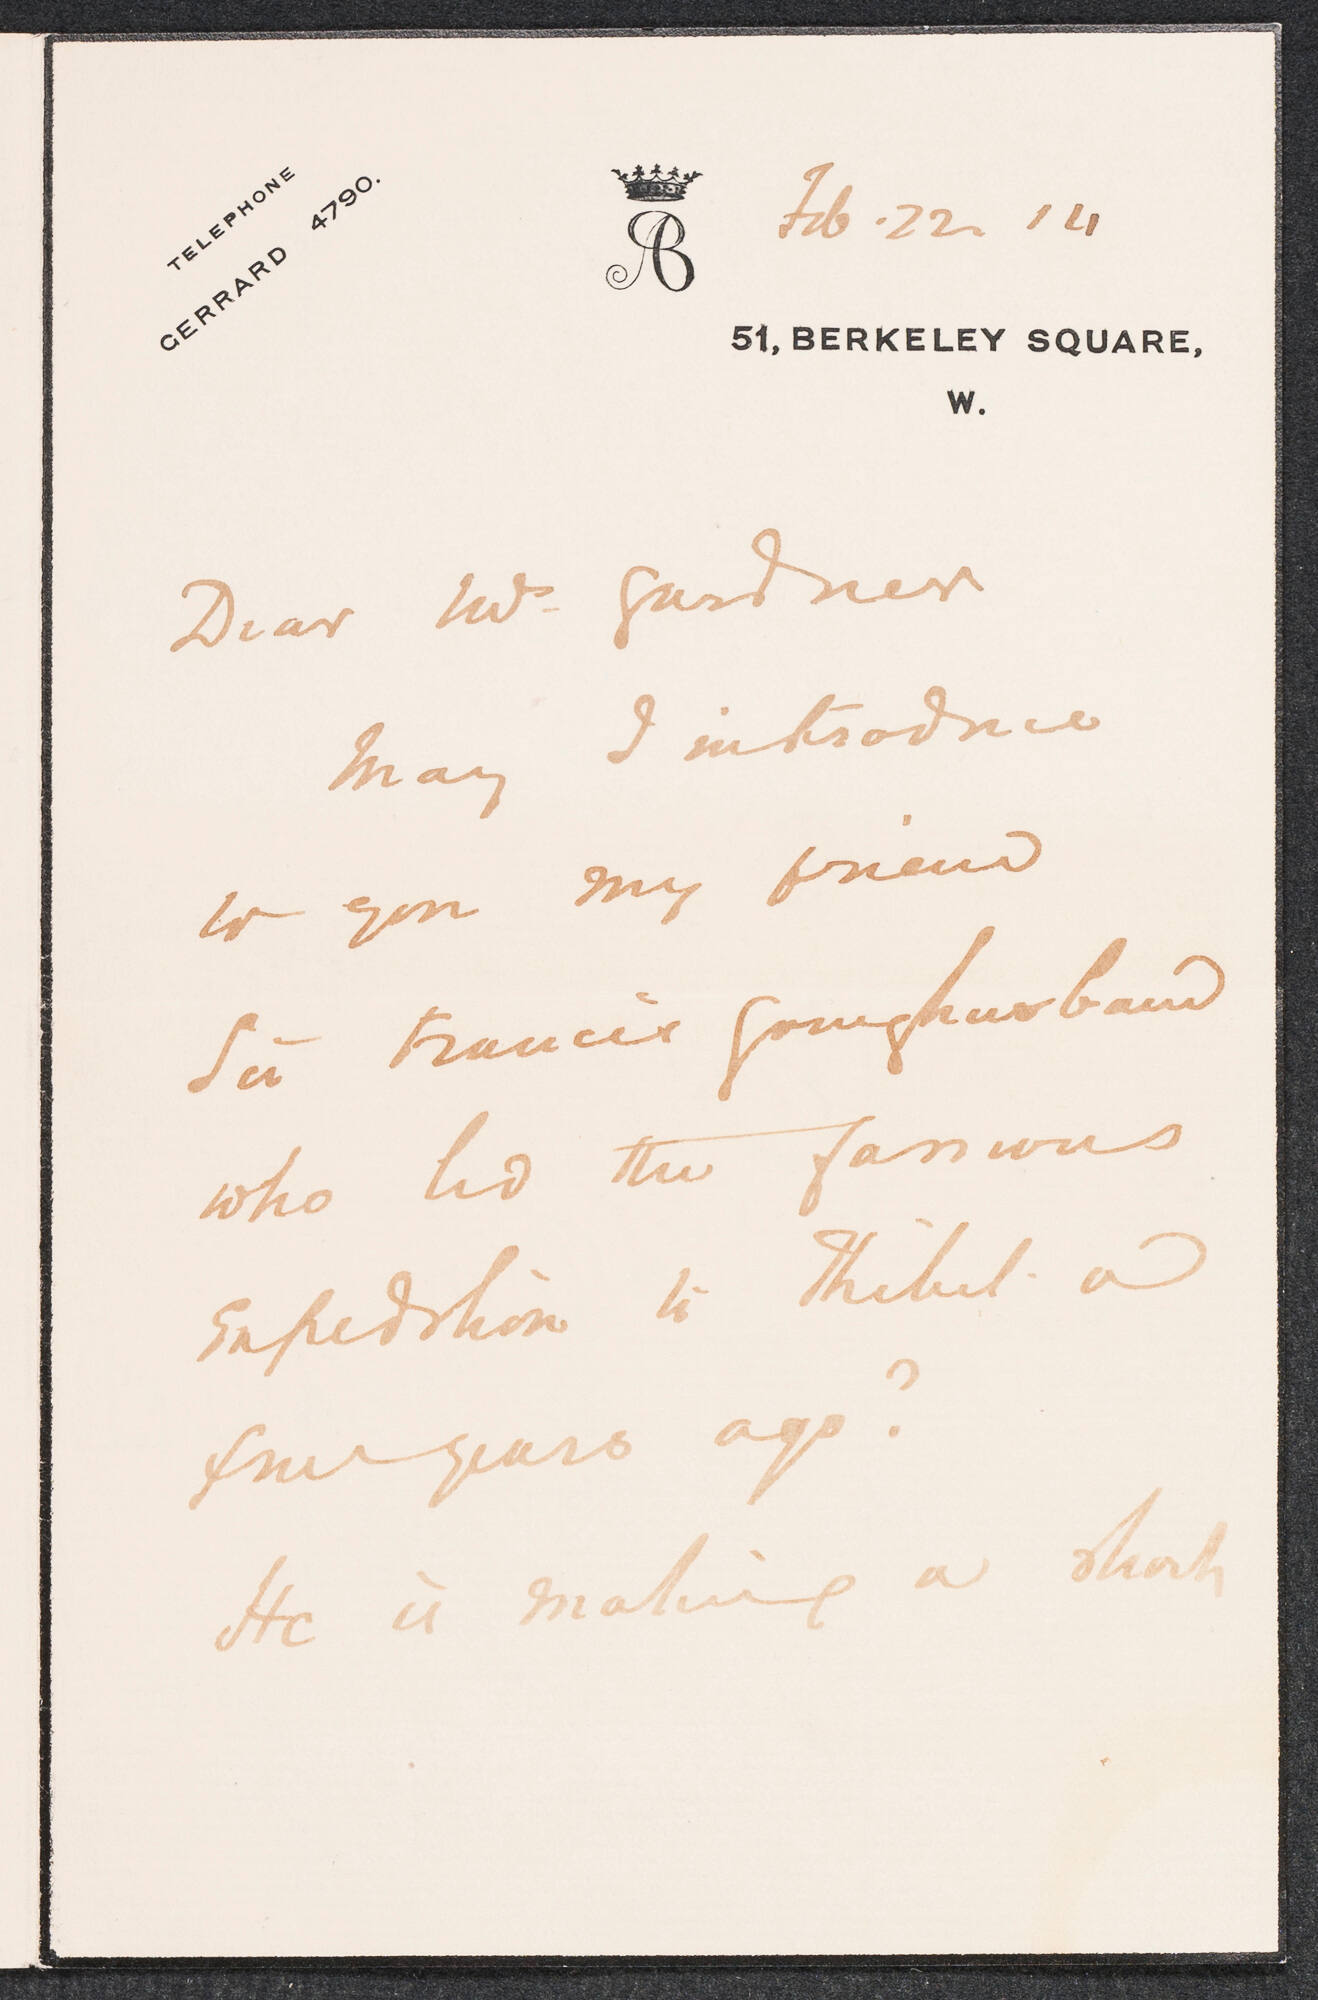 TELEPHONE
GERRARD 4790.
AB
Feb. 22. 14
51, BERKELEY SQUARE,
W.
Dear Mrs. Gardner
May I introduce
to you my friend
Sir Francis Younghusband
who led the famous
Expedition to Thibet a
few years ago?
He is making a short